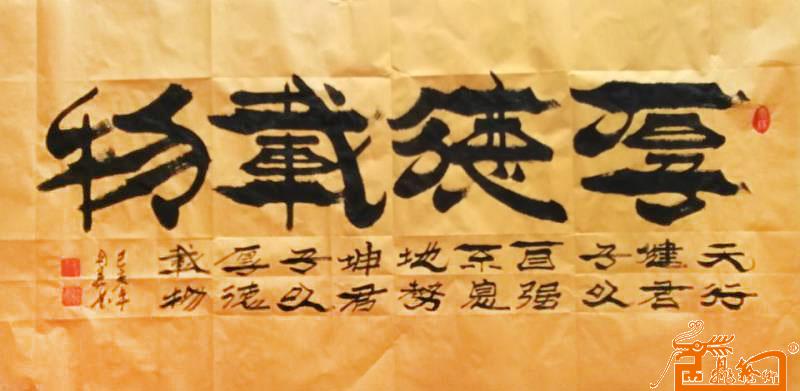 厚德載物
天行
健君
子以
自强
不息
地势
坤君
子以
厚德
载物
己亥年